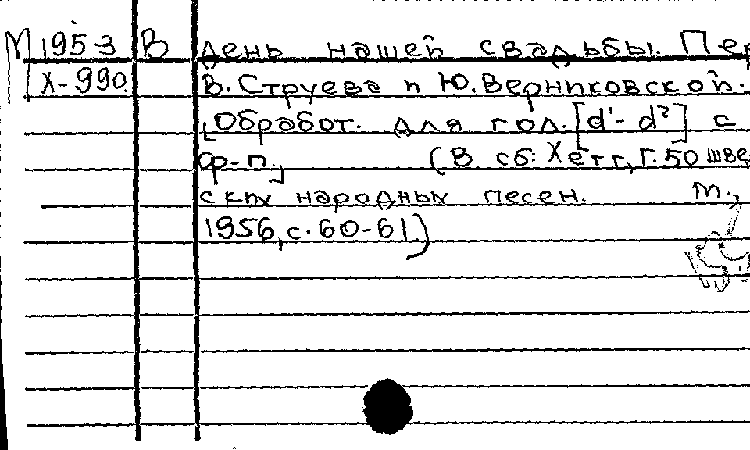 М 1953 В день нашей свадьбы. Пер
X-990. В. Струева и Ю. Верниковской.
[Обработ. для гол. [d¹-d²] с
ф-п.] (В сб: Хегг, Г. 50 шве
ских народных песен. М.,
1956, с. 60-61.)